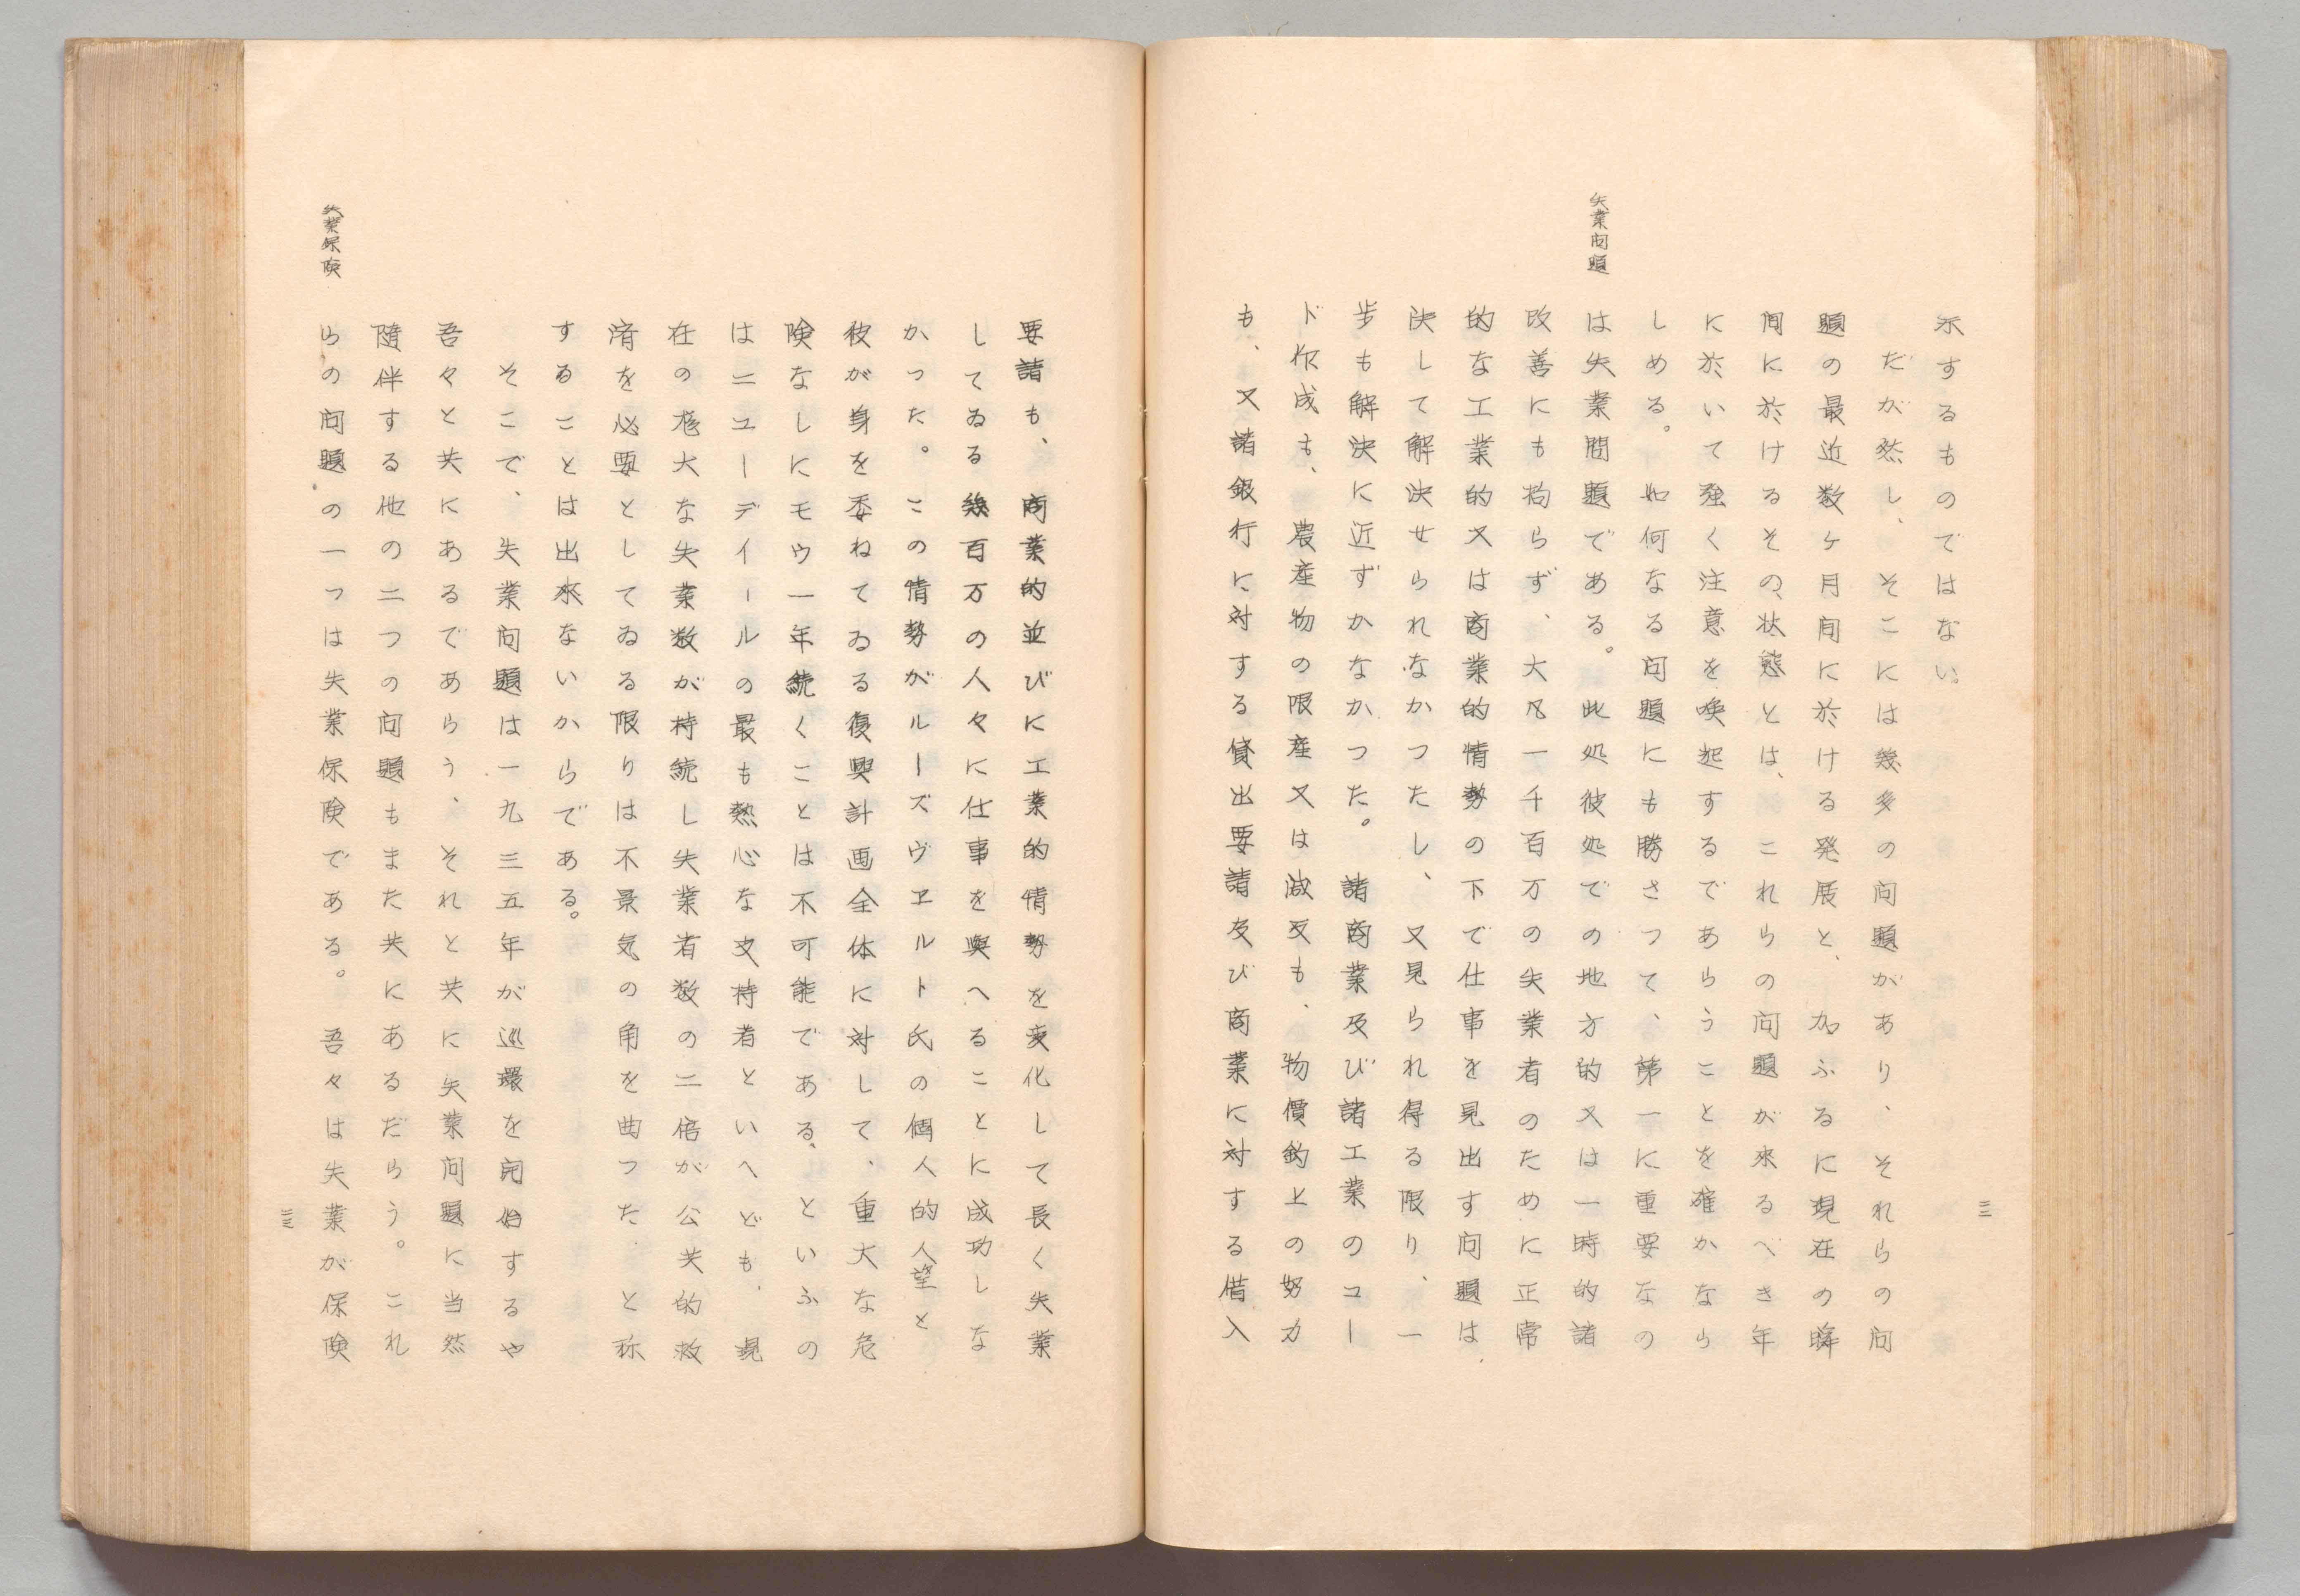 三二
示するものではない。
だが然し、そこには幾多の问題があり、それらの问
題の最近数ヶ月间に於ける発展と、加ふるに現在の瞬
间に於けるその状態とは、これらの问題が來るべき年
に於いて强く注意を喚起するであらうことを確かなら
しめる。如何なる问題にも勝さつて、第一に重要なの
失業问題
は失業問題である。此処彼処での地方的又は一時的諸
改善にも拘らず、大凡一千百万の失業者のために正常
的な工業的又は商業的情勢の下で仕事を見出す问題は、
決して解決せられなかつたし、又見られ得る限り、一
步も解決に近ずかなかつた。諸商業及び諸工業のコー
ド作成も、農産物の限産又は減反も、物價釣上の努力
も、又諸銀行に対する貸出要請及び商業に対する借入
要請も、商業的並びに工業的情勢を变化して長く失業
してゐる幾百万の人々に仕事を與へることに成功しな
かった。この情勢がルーズヴエルト氏の個人的人望と
彼が身を委ねてゐる復興計画全体に対して、重大な危
険なしにモウ一年続くことは不可能である、といふの
はニユーデイールの最も熱心な支持者といへども、現
在の厖大な失業数が持続し失業者数の二倍が公共的救
済を必要としてゐる限りは不景気の角を曲つた と称
することは出來ないからである。
そこで、失業问題は一九三五年が巡環を开始するや
吾々と共にあるであらう、それと共に失業问題に当然
隨伴する他の二つの问題もまた共にあるだらう。これ
失業保険
らの问題の一つは失業保険である。吾々は失業が保険
三三